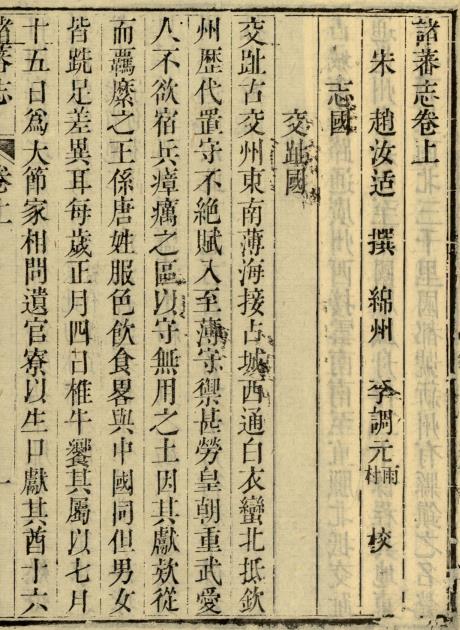 諸蕃志卷上
宋 趙汝适 撰 綿州 李調元 雨村 校
志國
交趾國
交趾古交州東南薄海接占城西通白衣蠻北抵欽
州歷代置守不絶賦入至薄守禦甚勞皇朝重武愛
人不欲宿兵瘴癘之區以守無用之土因其獻欵從
而羈縻之王係唐姓服色飲食畧與中國同但男女
皆跣足差異耳每歲正月四日椎牛饗其屬以七月
十五日爲大節家相問遺官寮以生口獻其酋十六
諸蕃志 卷上 一